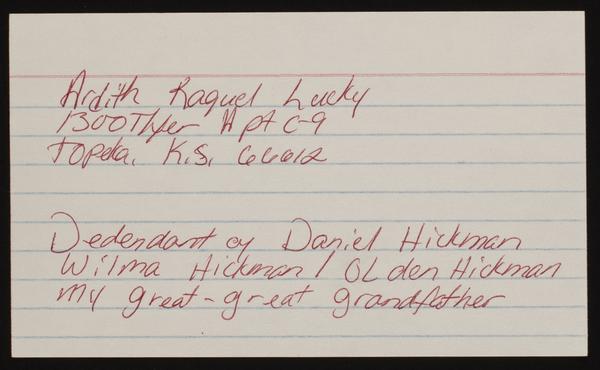 Ardith Raquel Lucky
1300 Tyler Apt C-9
Topeka, K.S. 66612
Dedendant of Daniel Hickman
Wilma Hickman / OLden Hickman
My great-great grandfather